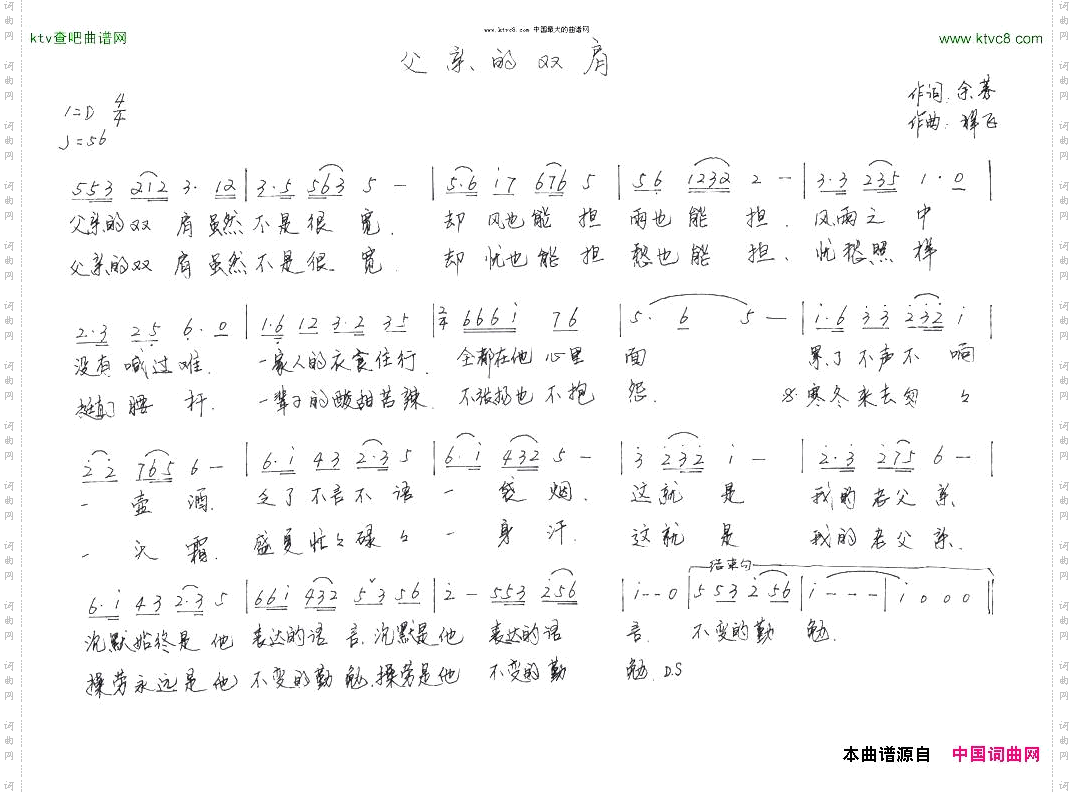 www.ktvc8.com 中国最大的曲谱网
ktv查吧曲谱网
www.ktvc8.com
父亲的双肩
作词:余慕
作曲:祥飞
1=D 4/4
♩=56
553 212 3· 12 | 3·5 563 5 — | 5·6 i7 676 5 | 56 1232 2 — | 3·3 235 1·0 |
父亲的双肩虽然不是很宽. 却风也能担雨也能担. 风雨之中
父亲的双肩虽然不是很宽. 却忧也能担愁也能担. 忧愁照样
2·3 25 6·0 | 1·6 12 3·2 35 | 2/4 666i 76 | 5· 6 5 — | i·6 33 232 i |
没有喊过难. 一家人的衣食住行. 全都在他心里面 累了不声不响
挺直了腰杆. 一辈子的酸甜苦辣. 不张扬也不抱怨. 寒冬来去匆匆
22 765 6 — | 6·i 43 2·3 5 | 6·i 432 5 — | 3 232 i — | 2·3 275 6 — |
一壶酒. 乏了不言不语一袋烟. 这就是我的老父亲
一次霜. 盛夏忙忙碌碌一身汗. 这就是我的老父亲.
结束句
6·i 43 2·3 5 | 66i 432 53 56 | 2 — 553 256 | i--0 | 553 2 56 | i--- | i000 ||
沉默始终是他表达的语言.沉默是他表达的语言. 不变的勤勉.
操劳永远是他不变的勤勉.操劳是他不变的勤勉. D.S
本曲谱源自 中国词曲网
词曲网